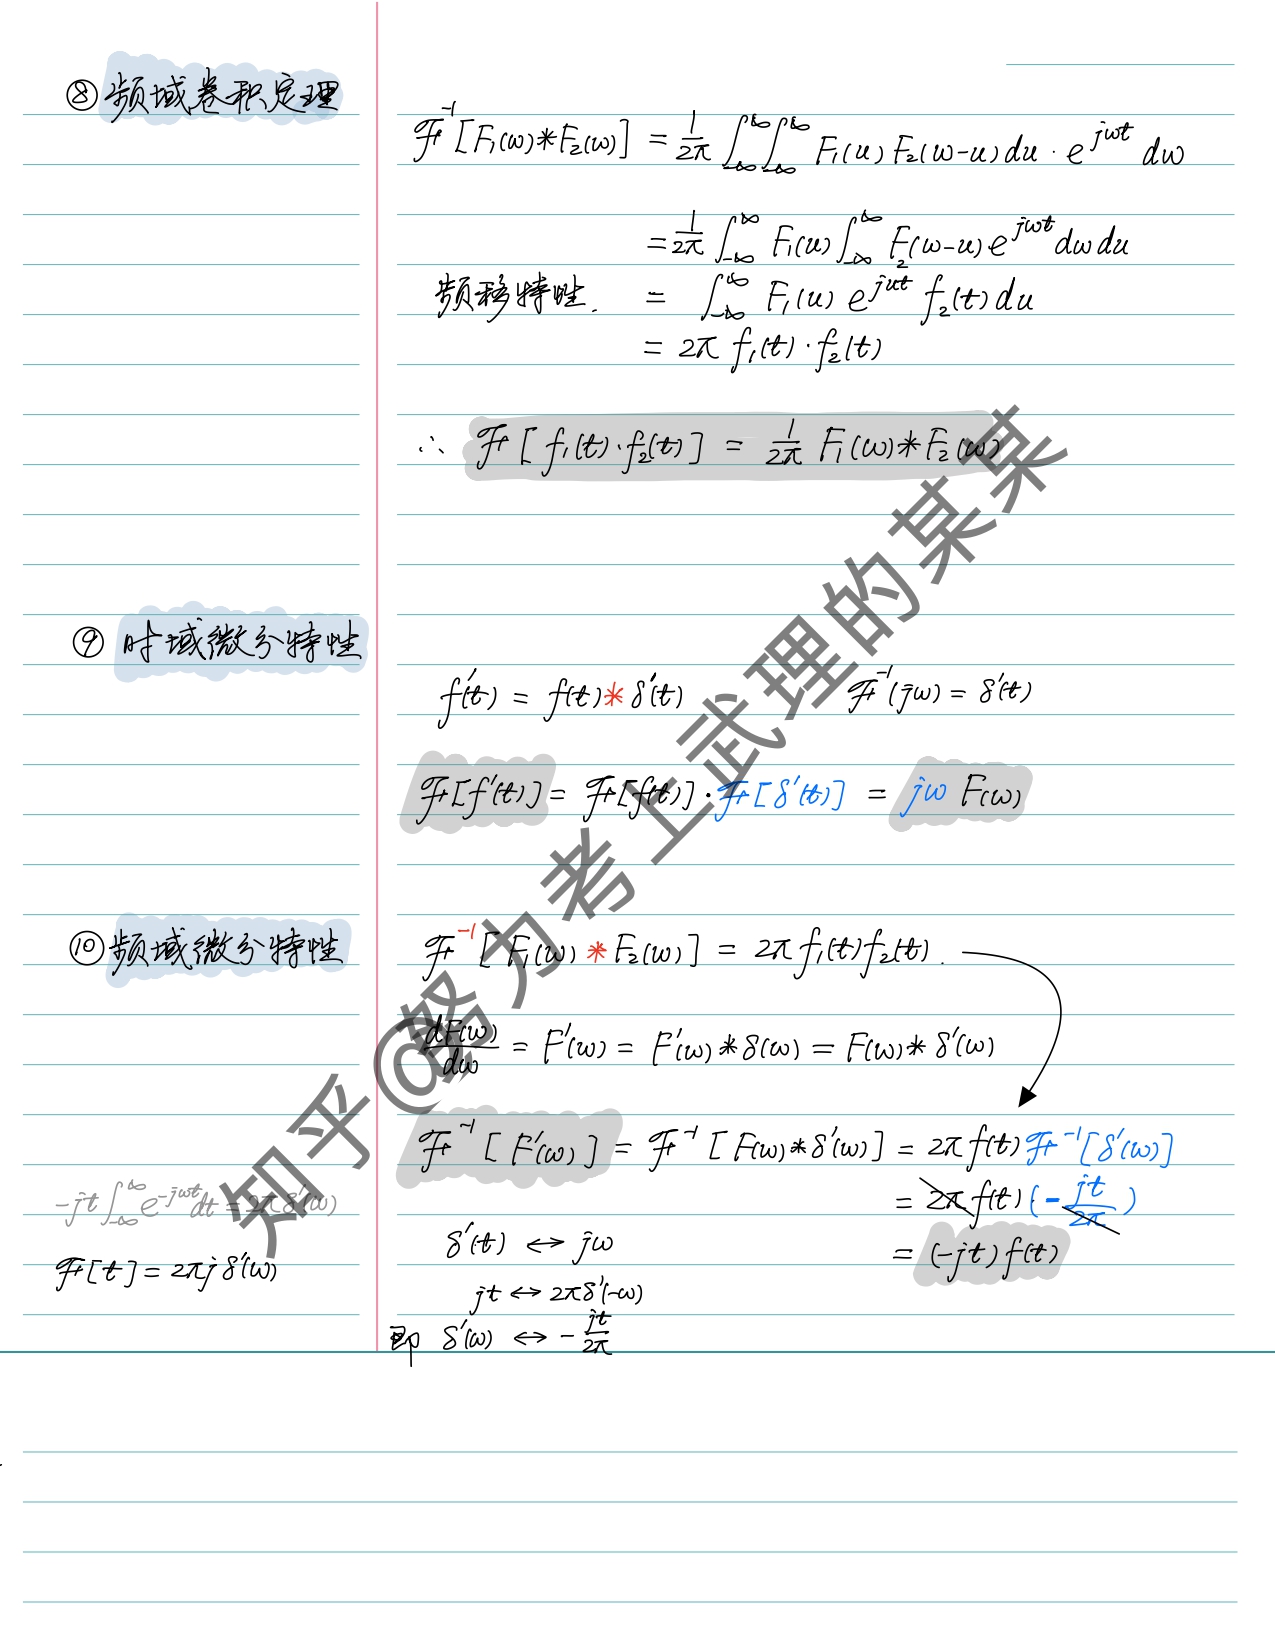 ⑧ 频域卷积定理
ℱ⁻¹[F₁(ω)*F₂(ω)] = 1/2π ∫_{-∞}^{∞}∫_{-∞}^{∞} F₁(u) F₂(ω-u) du · e^{jωt} dω
= 1/2π ∫_{-∞}^{∞} F₁(u) ∫_{-∞}^{∞} F₂(ω-u) e^{jωt} dω du
频移特性. = ∫_{-∞}^{∞} F₁(u) e^{jut} f₂(t) du
= 2π f₁(t)·f₂(t)
∴ ℱ[f₁(t)·f₂(t)] = 1/2π F₁(ω)*F₂(ω)
⑨ 时域微分特性
f'(t) = f(t)*δ'(t) ℱ⁻¹(jω) = δ'(t)
ℱ[f'(t)] = ℱ[f(t)]·ℱ[δ'(t)] = jω F(ω)
⑩ 频域微分特性
ℱ⁻¹[F₁(ω)*F₂(ω)] = 2π f₁(t) f₂(t).
dF(ω)/dω = F'(ω) = F'(ω)*δ(ω) = F(ω)*δ'(ω)
ℱ⁻¹[F'(ω)] = ℱ⁻¹[F(ω)*δ'(ω)] = 2π f(t) ℱ⁻¹[δ'(ω)]
= 2π f(t)(-jt/2π)
= (-jt) f(t)
-jt ∫_{-∞}^{∞} e^{-jωt} dt = 2πδ'(ω)
ℱ[t] = 2πj δ'(ω)
δ'(t) ↔ jω
jt ↔ 2πδ'(-ω)
即 δ'(ω) ↔ -jt/2π
知乎@努力考上武理的某某